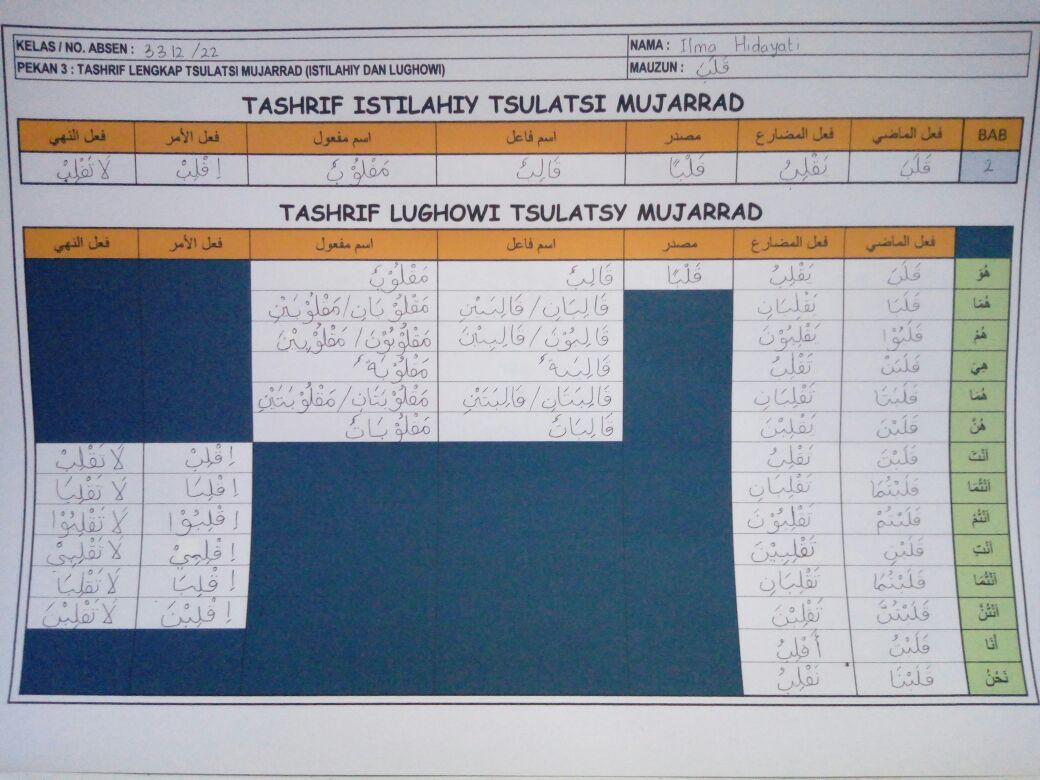 KELAS / NO. ABSEN : 3312 /22 NAMA : Ilma Hidayati
PEKAN 3 : TASHRIF LENGKAP TSULATSI MUJARRAD (ISTILAHIY DAN LUGHOWI) MAUZUN : قَلَبَ
TASHRIF ISTILAHIY TSULATSI MUJARRAD
BAB فعل الماضي فعل المضارع مصدر اسم فاعل اسم مفعول فعل الأمر فعل النهي
2 قَلَبَ يَقْلِبُ قَلْبًا قَالِبٌ مَقْلُوْبٌ اِقْلِبْ لَا تَقْلِبْ
TASHRIF LUGHOWI TSULATSY MUJARRAD
فعل الماضي فعل المضارع مصدر اسم فاعل اسم مفعول فعل الأمر فعل النهي
هُوَ قَلَبَ يَقْلِبُ قَلْبًا قَالِبٌ مَقْلُوْبٌ
هُمَا قَلَبَا يَقْلِبَانِ قَالِبَانِ/قَالِبَيْنِ مَقْلُوْبَانِ/مَقْلُوْبَيْنِ
هُمْ قَلَبُوْا يَقْلِبُوْنَ قَالِبُوْنَ/قَالِبِيْنَ مَقْلُوْبُوْنَ/مَقْلُوْبِيْنَ
هِيَ قَلَبَتْ تَقْلِبُ قَالِبَةٌ مَقْلُوْبَةٌ
هُمَا قَلَبَتَا تَقْلِبَانِ قَالِبَتَانِ/قَالِبَتَيْنِ مَقْلُوْبَتَانِ/مَقْلُوْبَتَيْنِ
هُنَّ قَلَبْنَ يَقْلِبْنَ قَالِبَاتٌ مَقْلُوْبَاتٌ
أَنْتَ قَلَبْتَ تَقْلِبُ اِقْلِبْ لَا تَقْلِبْ
أَنْتُمَا قَلَبْتُمَا تَقْلِبَانِ اِقْلِبَا لَا تَقْلِبَا
أَنْتُمْ قَلَبْتُمْ تَقْلِبُوْنَ اِقْلِبُوْا لَا تَقْلِبُوْا
أَنْتِ قَلَبْتِ تَقْلِبِيْنَ اِقْلِبِيْ لَا تَقْلِبِيْ
أَنْتُمَا قَلَبْتُمَا تَقْلِبَانِ اِقْلِبَا لَا تَقْلِبَا
أَنْتُنَّ قَلَبْتُنَّ تَقْلِبْنَ اِقْلِبْنَ لَا تَقْلِبْنَ
أَنَا قَلَبْتُ أَقْلِبُ
نَحْنُ قَلَبْنَا نَقْلِبُ